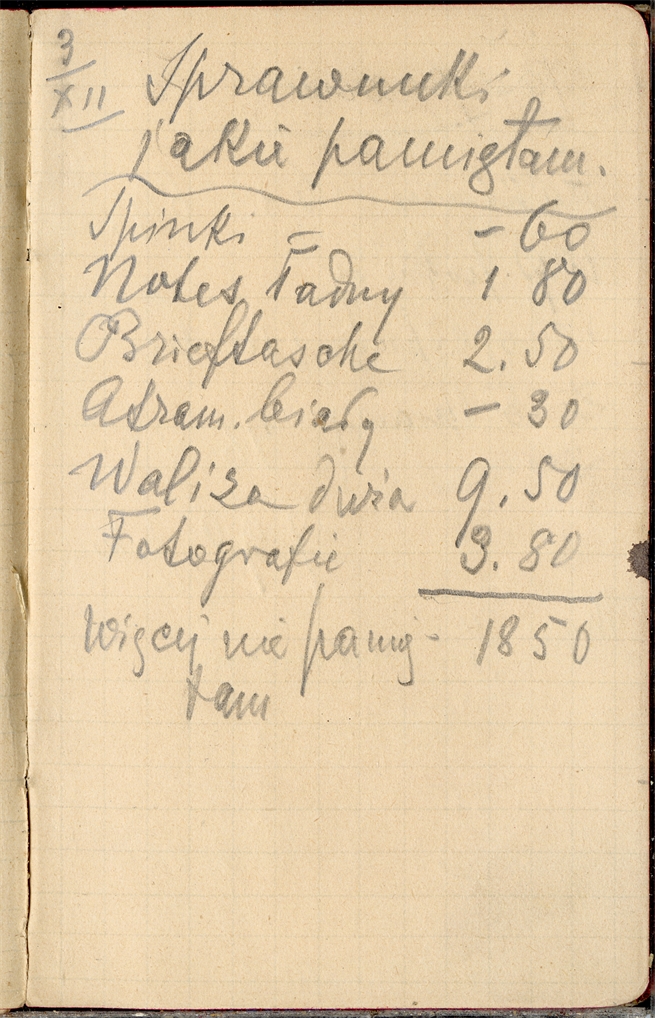 3/XII Sprawunki
jakie pamiętam.
Spinki – - 60
Notes ładny 1 80
Brieftasche 2.50
Atram. biały - 30
Waliza duża 9.50
Fotografie 3.80
Więcej nie pamię- 1850
tam